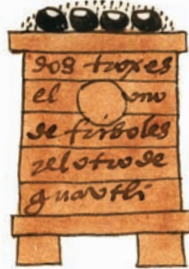 dos troxes
el uno
de frisoles
yel otro de
guautli